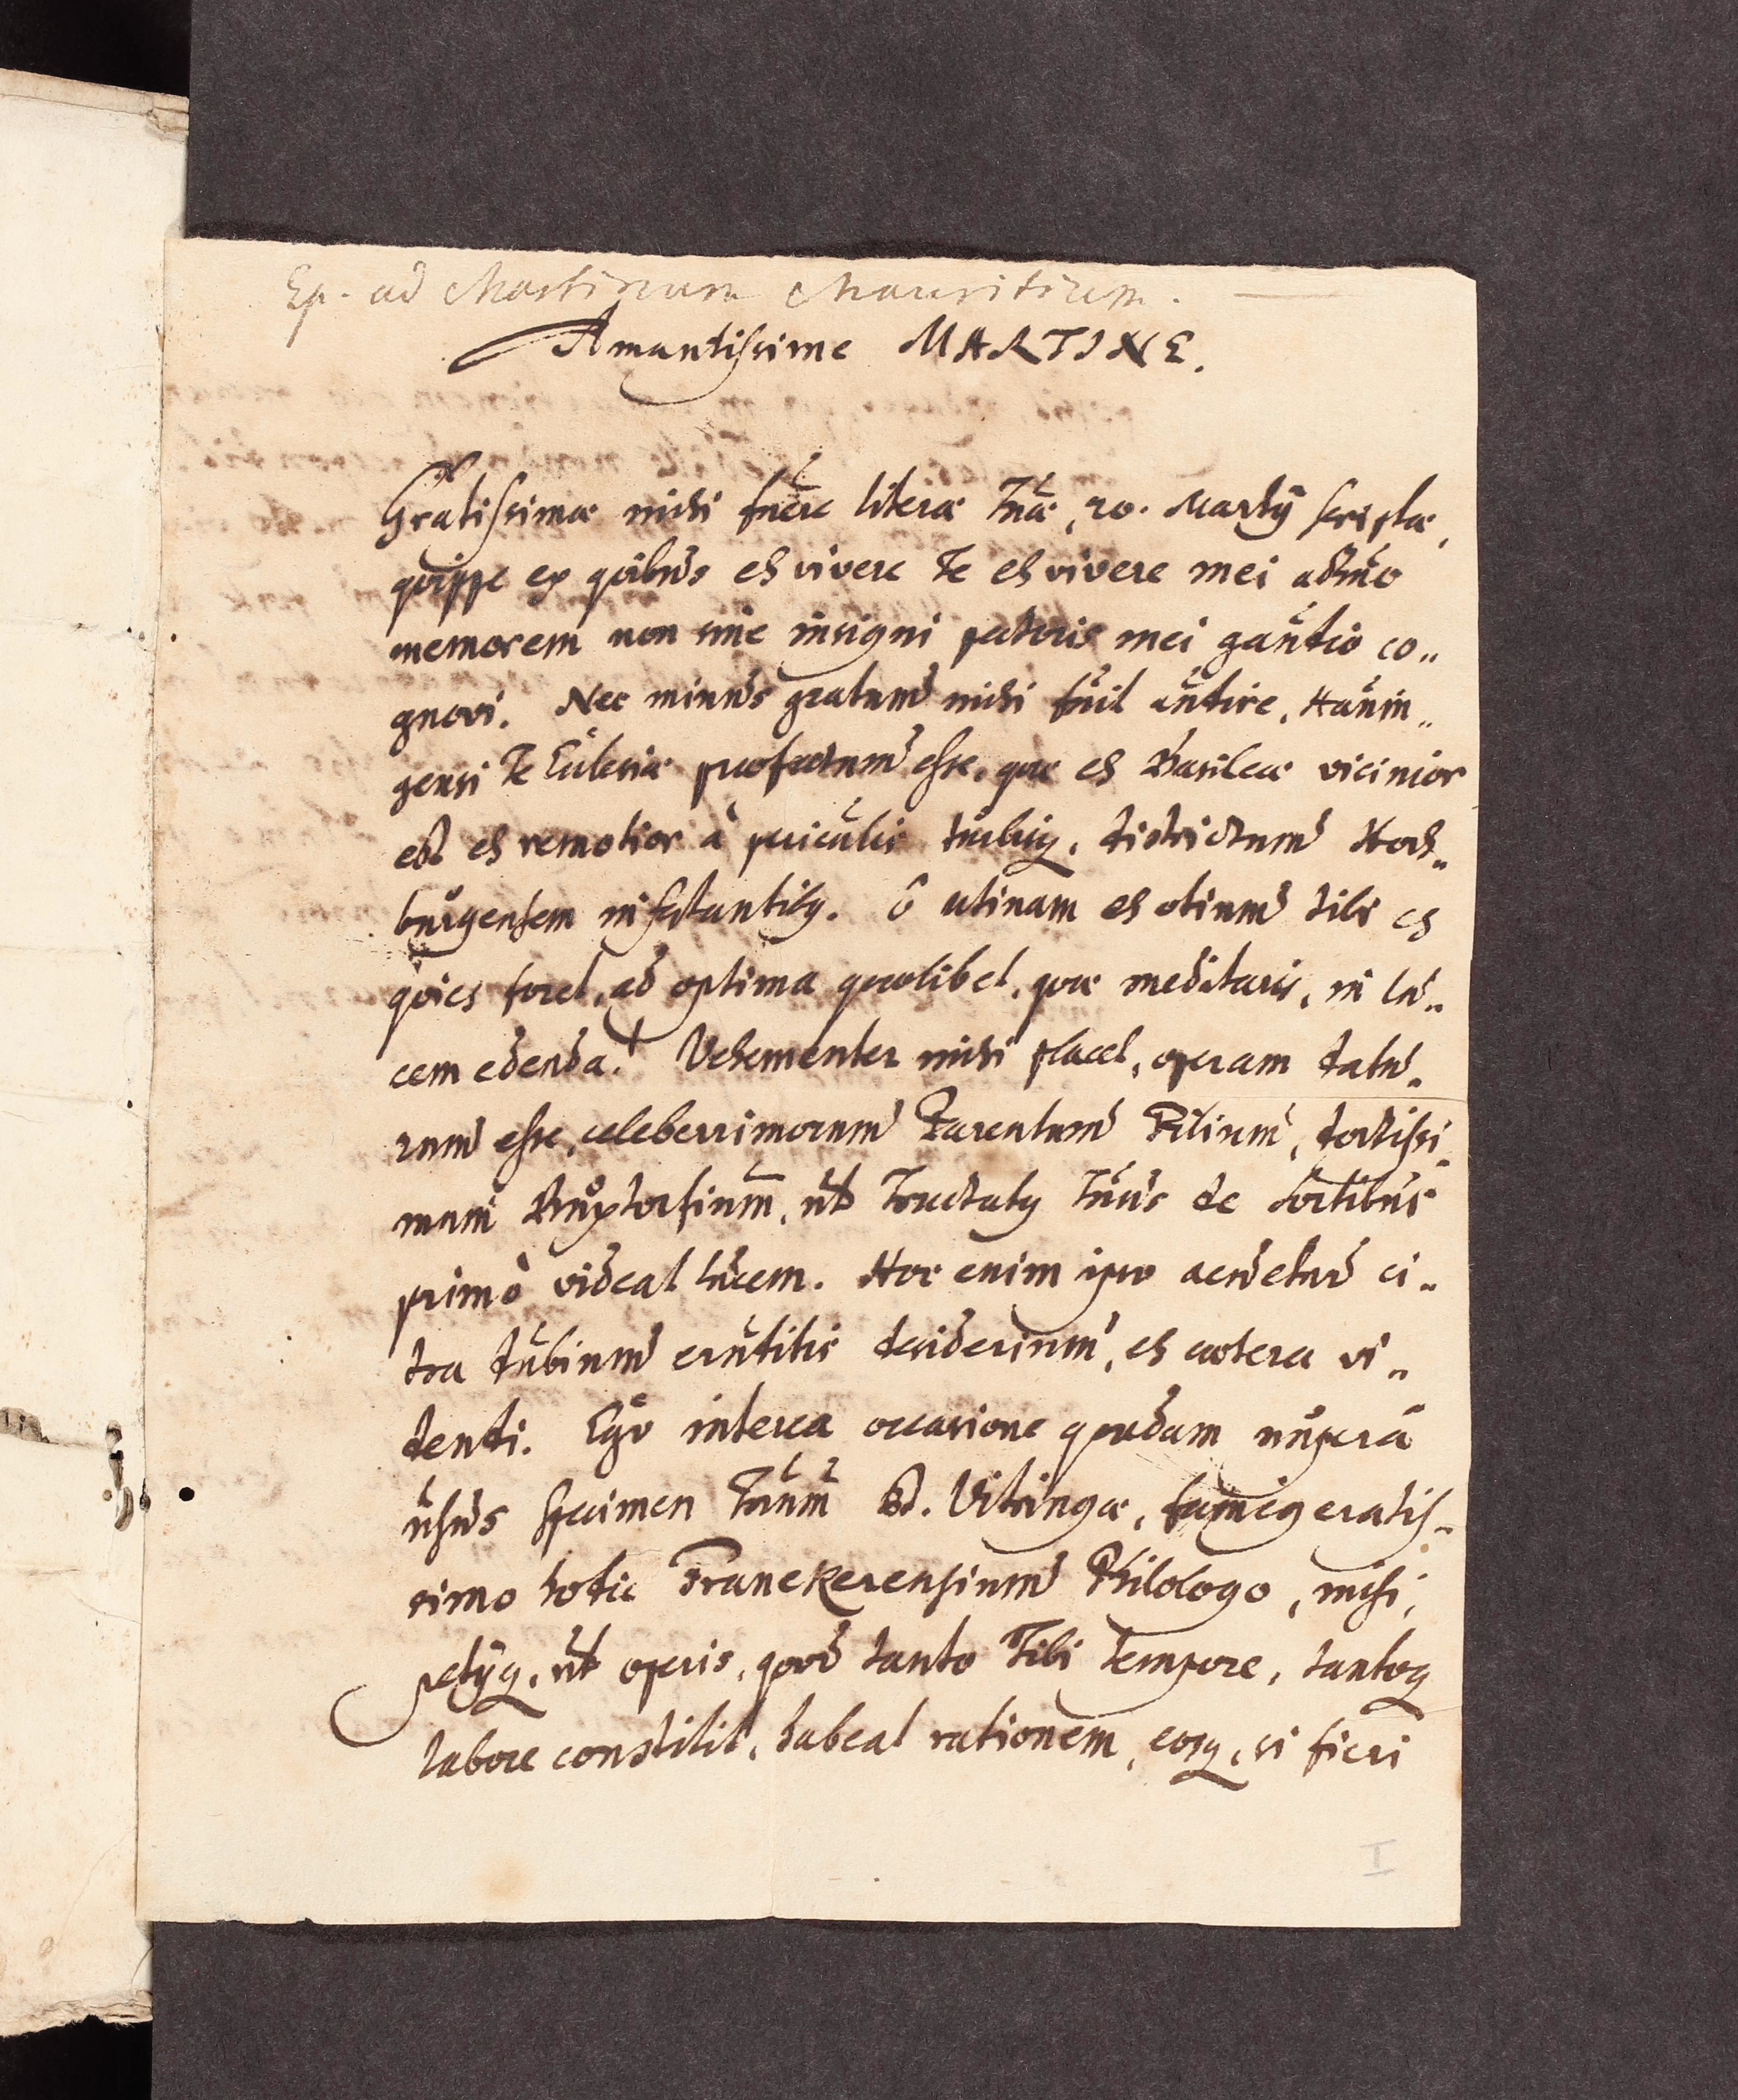 Ep. ad Martinum Mauritium.
Amantissime MARTINE.
Gratissimæ mihi fuêre literæ Tuæ, 20. Martij scriptæ,
quippe ex quibus et vivere Te et vivere mei adhuc
memorem non sine insigni pectoris mei gaudio co„
gnovi. Nec minus gratum mihi fuit audire, Hänin„
gensi Te Ecclesiæ præfectum esse, quæ et Basileæ vicinior
est et remotior à periculis turbisq, districtum Hoch„
burgensem infestantibq. ô utinam et otium tibi et
quies foret, ad optima quælibet, quæ meditaris, in lu„
cem edenda! Vehementer mihi placet, operam datu„
rum esse, celeberrimorum Parentum Filium, doctissi„
mum Buxtorfium, ut Tractatq Tuus de Sortibus
primò videat lucem. Hoc enim ipso acuetur ci„
tra dubium eruditis desiderium, et cætera vi„
dendi. Ego interea occasione quadam nuperâ
usus specimen Tuum Cl. Vitringæ, famigeratis„
simo hodie Franekerensium Philologo, misi,
petijq, ut operis, quod tanto Tibi tempore, tantoq
labore constitit, habeat rationem, eoq, si fieri
I